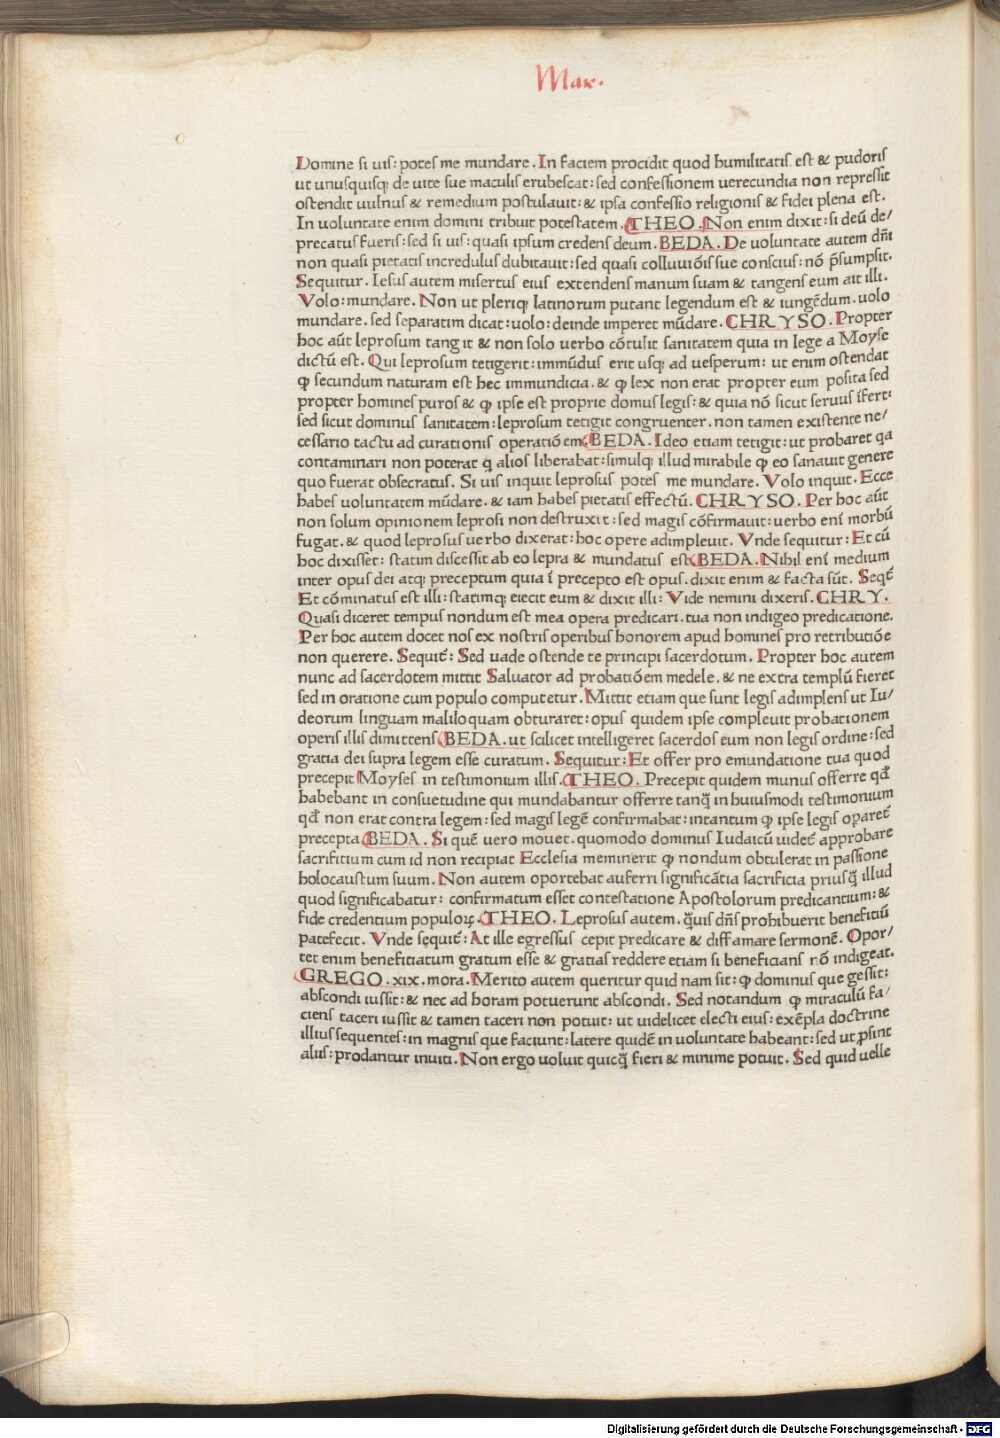 Mar.
Domine si uis: potes me mundare. In faciem procidit quod humilitatis est & pudoris
ut unusquisq; de uite sue maculis erubescat: sed confessionem uerecundia non repressit
ostendit uulnus & remedium postulauit: & ipsa confessio religionis & fidei plena est.
In uoluntate enim domini tribuit potestatem. THEO. Non enim dixit: si deū de/
precatus fueris: sed si uis: quasi ipsum credens deum. BEDA. De uoluntate autem dn̄i
non quasi pietatis incredulus dubitauit: sed quasi colluuiōis sue conscius: nō p̄sumpsit.
Sequitur. Iesus autem misertus eius extendens manum suam & tangens eum ait illi.
Volo: mundare. Non ut pleriq; latinorum putant legendum est & iungēdum. uolo
mundare. sed separatim dicat: uolo: deinde imperet mūdare. CHRYSO. Propter
hoc aūt leprosum tangit & non solo uerbo cōtulit sanitatem quia in lege a Moyse
dictū est. Qui leprosum tetigerit: immūdus erit usq; ad uesperum: ut enim ostendat
ꝙ secundum naturam est hec immundicia. & ꝙ lex non erat propter eum posita sed
propter homines puros & ꝙ ipse est proprie domus legis: & quia nō sicut seruus īfert:
sed sicut dominus sanitatem: leprosum tetigit congruenter. non tamen existente ne/
cessario tactu ad curationis operatiōem. BEDA. Ideo etiam tetigit: ut probaret qa
contaminari non poterat q̄ alios liberabat: simulq; illud mirabile ꝙ eo sanauit genere
quo fuerat obsecratus. Si uis inquit leprosus potes me mundare. Volo inquit. Ecce
habes uoluntatem mūdare. & iam habes pietatis effectū. CHRYSO. Per hoc aūt
non solum opinionem leprosi non destruxit: sed magis cōfirmauit: uerbo enī morbū
fugat. & quod leprosus uerbo dixerat: hoc opere adimpleuit. Vnde sequitur: Et cū
hoc dixisset: statim discessit ab eo lepra & mundatus est. BEDA. Nihil enī medium
inter opus dei atq; preceptum quia ī precepto est opus. dixit enim & facta sūt. Seqt̄
Et cōminatus est illi: statimq; eiecit eum & dixit illi: Vide nemini dixeris. CHRY.
Quasi diceret tempus nondum est mea opera predicari. tua non indigeo predicatione.
Per hoc autem docet nos ex nostris operibus honorem apud homines pro retributiōe
non querere. Sequit̄: Sed uade ostende te principi sacerdotum. Propter hoc autem
nunc ad sacerdotem mittit Saluator ad probatiōem medele. & ne extra templū fieret
sed in oratione cum populo computetur. Mittit etiam que sunt legis adimplens ut Iu/
deorum linguam maliloquam obturaret: opus quidem ipse compleuit probationem
operis illis dimittens. BEDA. ut scilicet intelligeret sacerdos eum non legis ordine: sed
gratia dei supra legem esse curatum. Sequitur: Et offer pro emundatione tua quod
precepit Moyses in testimonium illis. THEO. Precepit quidem munus offerre qd̄
habebant in consuetudine qui mundabantur offerre tanq̄ in huiusmodi testimonium
qd̄ non erat contra legem: sed magis legē confirmabat: intantum ꝙ ipse legis oparet̄
precepta. BEDA. Si quē uero mouet. quomodo dominus Iudaicū uidet̄ approbare
sacrificium cum id non recipiat Ecclesia meminerit ꝙ nondum obtulerat in passione
holocaustum suum. Non autem oportebat auferri significātia sacrificia priusq̄ illud
quod significabatur: confirmatum esset contestatione Apostolorum predicantium: &
fide credentium populoꝝ. THEO. Leprosus autem. q̄uis dn̄s prohibuerit beneficiū
patefecit. Vnde sequit̄: At ille egressus cepit predicare & diffamare sermonē. Opor/
tet enim beneficiatum gratum esse & gratias reddere etiam si beneficians nō indigeat.
GREGO. xix. mora. Merito autem queritur quid nam sit: ꝙ dominus que gessit:
abscondi iussit: & nec ad horam potuerunt abscondi. Sed notandum ꝙ miraculū fa/
ciens taceri iussit & tamen taceri non potuit: ut uidelicet electi eius: exēpla doctrine
illius sequentes: in magnis que faciunt: latere quidē in uoluntate habeant: sed ut ꝓsint
aliis: prodantur inuiti. Non ergo uoluit quicq̄ fieri & minime potuit. Sed quid uelle
Digitalisierung gefördert durch die Deutsche Forschungsgemeinschaft - DFG